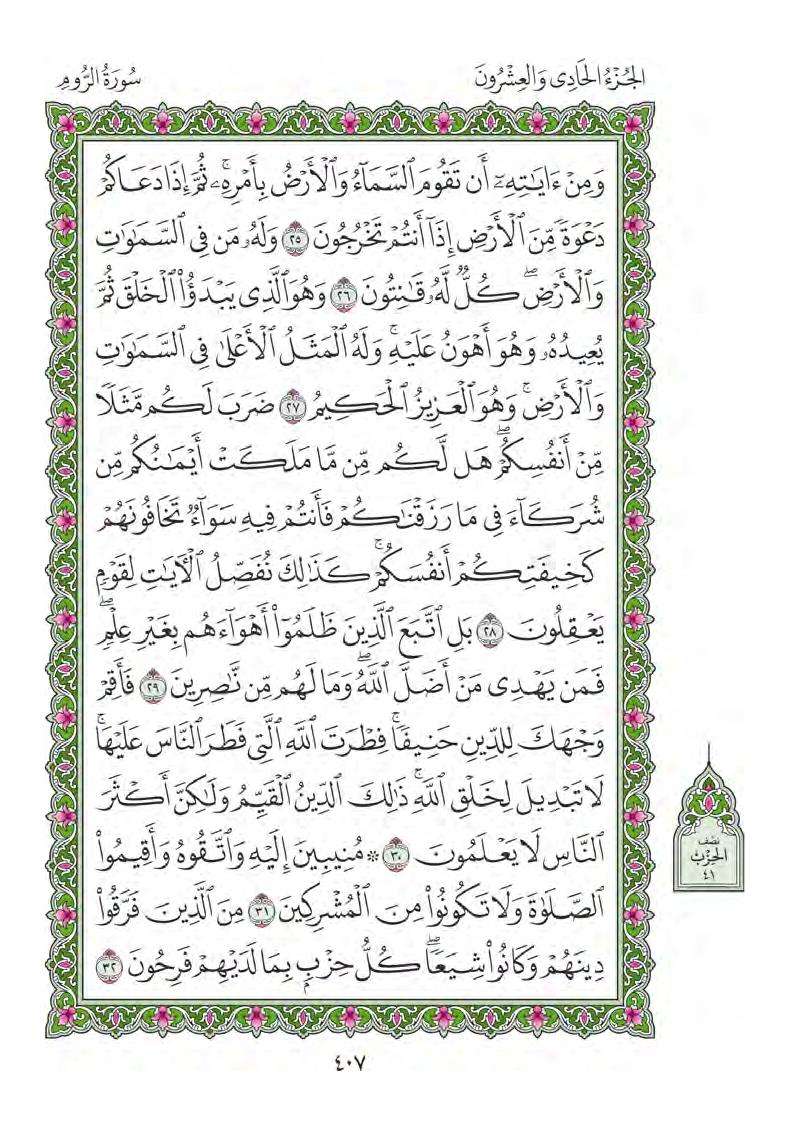 الجُزْءُ الحَادِى وَالعِشْرُونَ
سُورَةُ الرُّومِ
وَمِنْ ءَايَٰتِهِۦٓ أَن تَقُومَ ٱلسَّمَآءُ وَٱلْأَرْضُ بِأَمْرِهِۦۚ ثُمَّ إِذَا دَعَاكُمْ
دَعْوَةً مِّنَ ٱلْأَرْضِ إِذَآ أَنتُمْ تَخْرُجُونَ ٢٥ وَلَهُۥ مَن فِى ٱلسَّمَٰوَٰتِ
وَٱلْأَرْضِۖ كُلٌّ لَّهُۥ قَٰنِتُونَ ٢٦ وَهُوَ ٱلَّذِى يَبْدَؤُا۟ ٱلْخَلْقَ ثُمَّ
يُعِيدُهُۥ وَهُوَ أَهْوَنُ عَلَيْهِۚ وَلَهُ ٱلْمَثَلُ ٱلْأَعْلَىٰ فِى ٱلسَّمَٰوَٰتِ
وَٱلْأَرْضِۚ وَهُوَ ٱلْعَزِيزُ ٱلْحَكِيمُ ٢٧ ضَرَبَ لَكُم مَّثَلًا
مِّنْ أَنفُسِكُمْۖ هَل لَّكُم مِّن مَّا مَلَكَتْ أَيْمَٰنُكُم مِّن
شُرَكَآءَ فِى مَا رَزَقْنَٰكُمْ فَأَنتُمْ فِيهِ سَوَآءٌ تَخَافُونَهُمْ
كَخِيفَتِكُمْ أَنفُسَكُمْۚ كَذَٰلِكَ نُفَصِّلُ ٱلْءَايَٰتِ لِقَوْمٍ
يَعْقِلُونَ ٢٨ بَلِ ٱتَّبَعَ ٱلَّذِينَ ظَلَمُوٓا۟ أَهْوَآءَهُم بِغَيْرِ عِلْمٍۖ
فَمَن يَهْدِى مَنْ أَضَلَّ ٱللَّهُۖ وَمَا لَهُم مِّن نَّٰصِرِينَ ٢٩ فَأَقِمْ
وَجْهَكَ لِلدِّينِ حَنِيفًاۚ فِطْرَتَ ٱللَّهِ ٱلَّتِى فَطَرَ ٱلنَّاسَ عَلَيْهَاۚ
لَا تَبْدِيلَ لِخَلْقِ ٱللَّهِۚ ذَٰلِكَ ٱلدِّينُ ٱلْقَيِّمُ وَلَٰكِنَّ أَكْثَرَ
ٱلنَّاسِ لَا يَعْلَمُونَ ٣٠ ۞ مُنِيبِينَ إِلَيْهِ وَٱتَّقُوهُ وَأَقِيمُوا۟
ٱلصَّلَوٰةَ وَلَا تَكُونُوا۟ مِنَ ٱلْمُشْرِكِينَ ٣١ مِنَ ٱلَّذِينَ فَرَّقُوا۟
دِينَهُمْ وَكَانُوا۟ شِيَعًاۖ كُلُّ حِزْبٍۭ بِمَا لَدَيْهِمْ فَرِحُونَ ٣٢
نصف
الحِزْب
٤١
٤٠٧